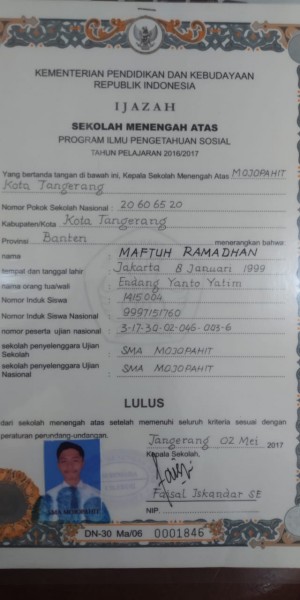 KEMENTERIAN PENDIDIKAN DAN KEBUDAYAAN
REPUBLIK INDONESIA
IJAZAH
SEKOLAH MENENGAH ATAS
PROGRAM ILMU PENGETAHUAN SOSIAL
TAHUN PELAJARAN 2016/2017
Yang bertanda tangan di bawah ini, Kepala Sekolah Menengah Atas MOJOPAHIT
Kota Tangerang
Nomor Pokok Sekolah Nasional : 20606520
Kabupaten/Kota Kota Tangerang
Provinsi Banten menerangkan bahwa
nama : MAFTUH RAMADHAN
tempat dan tanggal lahir : Jakarta 8 Januari 1999
nama orang tua/wali : Endang Yanto Yatim
Nomor Induk Siswa : 1415004
Nomor Induk Siswa Nasional : 9997151760
nomor peserta ujian nasional : 3-17-30-02-046-003-6
sekolah penyelenggara Ujian Sekolah : SMA MOJOPAHIT
sekolah penyelenggara Ujian Nasional : SMA MOJOPAHIT
LULUS
dari sekolah menengah atas setelah memenuhi seluruh kriteria sesuai dengan
peraturan perundang-undangan.
Tangerang 02 Mei 2017
Kepala Sekolah,
Faisal Iskandar SE
NIP.
DN-30 Ma/06 0001846